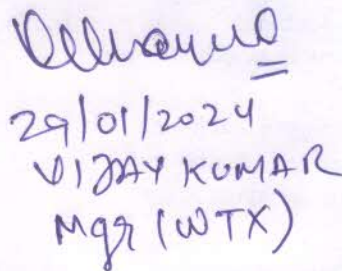 29/01/2024
VIJAY KUMAR
Mgr (WTX)